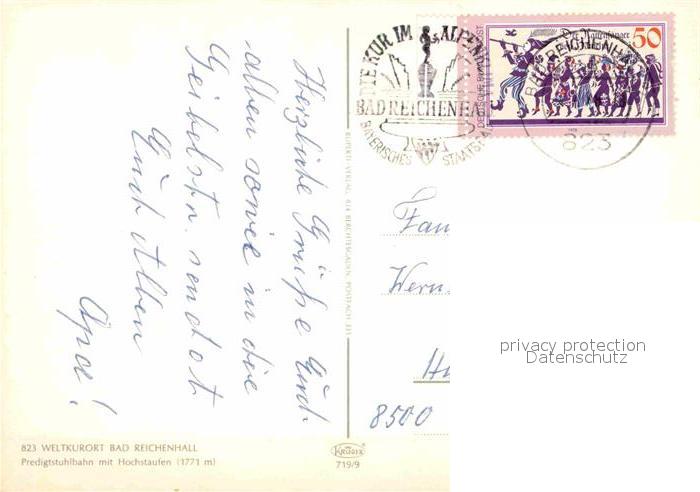 Herzliche Grüße Euch
allen sowie in die
Geibelstr. sendet
Euch Allen
Opa!
823 WELTKURORT BAD REICHENHALL
Predigtstuhlbahn mit Hochstaufen (1771 m)
RUPERTI-VERLAG, 824 BERCHTESGADEN, POSTFACH 331
KRÜGER
719/9
DIE KUR IM ALPENKL
BAD REICHENHA
BAYERISCHES STAATSBAD
DEUTSCHE BUNDESPOST
Der Rattenfänger
50
BAD REICHENHALL
823
Fam.
Wern.
8500
privacy protection
Datenschutz